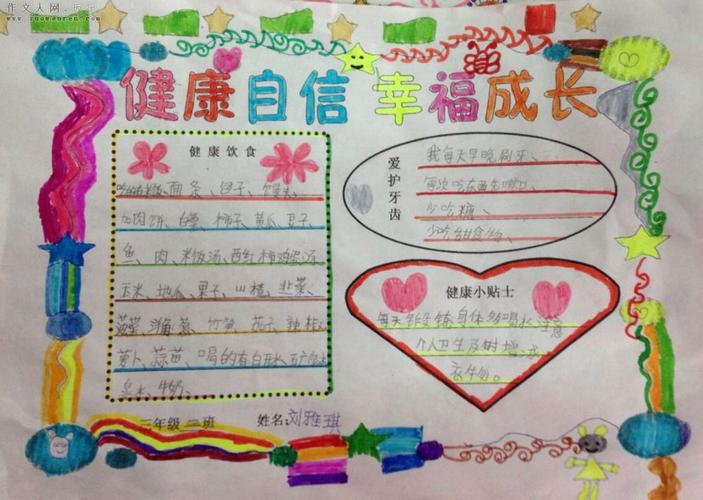 作文人网
www.zuowenren.com
健康自信 幸福成长
健康饮食
面条、包子、馒头、
肉饼、白菜、柿子、黄瓜、豆子、
鱼、肉、米饭汤、西红柿鸡蛋汤
玉米、地瓜、果子、山楂、韭菜、
菠菜、竹笋、茄子、辣椒、
萝卜、蒜苗、喝的有白开水、
牛奶、
二班
姓名:刘雅琪
爱护牙齿
我每天早晚刷牙、
每次吃东西先漱口、
少吃糖、
少吃甜食物、
健康小贴士
每天 锻炼身体 多喝水 注意
个人卫生及时增、减
衣物。